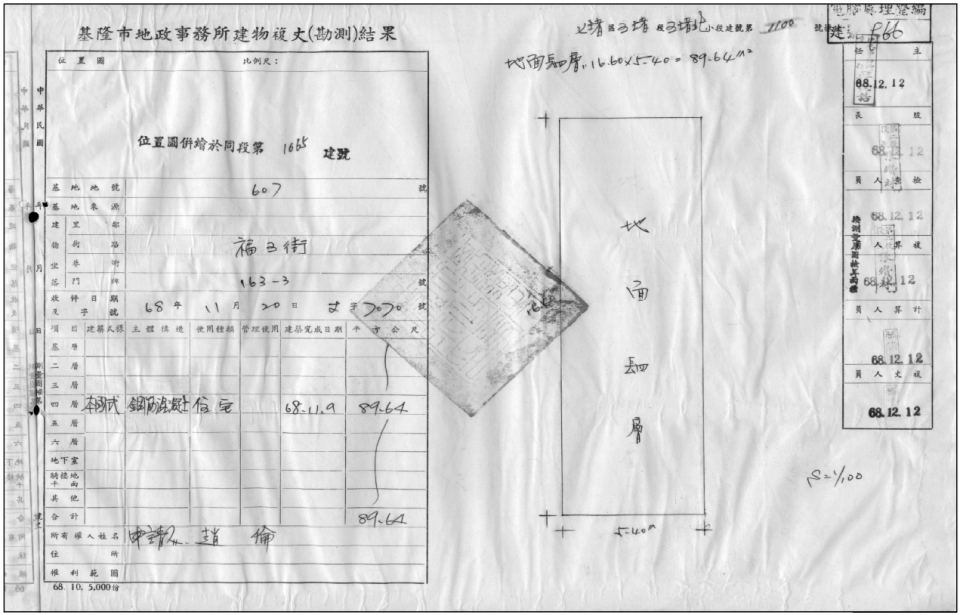 基隆市地政事務所建物複丈(勘測)結果
位置圖 比例尺：
位置圖併繪於同段第 1665 建號
基地地號 607 號
基地來源
建 里 鄰
物 街 路 福五街
坐 巷 衖
落 門 牌 163-3 號
收件日期 68年 11月 20日
及字號 字7070號
項目 建築式樣 主體構造 使用種類 管理使用 建築完成日期 平方公尺
基層
二層
三層
四層 本國式 鋼筋混凝土 住宅 68.11.9 89.64
五層
六層
地下室
騎樓地平面
其他
合計 89.64
所有權人姓名 申請人 趙 倫
住所
權利範圍
68.10.5,000份
中華民國
年
月
日
五堵北小段建號第 1100 號
地面四層 16.60×5.40=89.64m²
地面四層
5.40m
S=1/100
電腦處理登編
建
主任
68.12.12
股長
68.12.12
檢查人員
68.12.12
複算人
68.12.12
計算人員
68.12.12
複丈人員
68.12.12